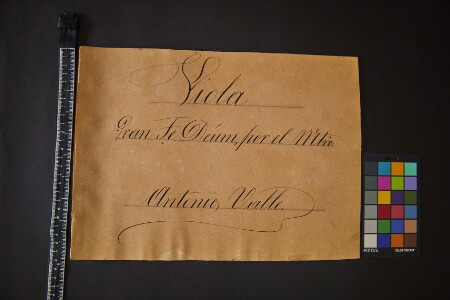 Viola
Gran Te Deum, por el Mtro.
Antonio Valle.